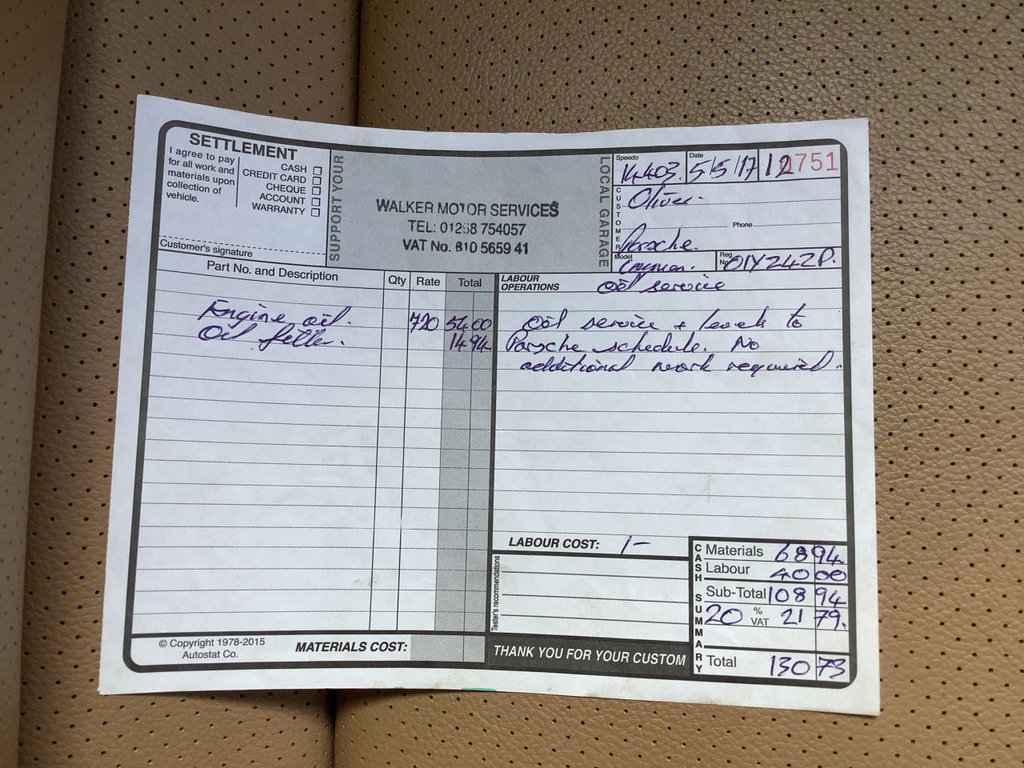 SETTLEMENT
I agree to pay
for all work and
materials upon
collection of
vehicle.
CASH
CREDIT CARD
CHEQUE
ACCOUNT
WARRANTY
Customer's signature
SUPPORT YOUR
WALKER MOTOR SERVICES
TEL: 01268 754057
VAT No. 810 5659 41
LOCAL GARAGE
Speedo 14403.
Date 5/5/17
2751
CUSTOMER
Oliver.
Phone
Porsche.
Model Cayman.
Reg No. OIY242P.
Part No. and Description Qty Rate Total
Engine oil. 720 54.00
Oil filter. 14 94.
LABOUR OPERATIONS
Oil service
Oil service + levels to
Porsche schedule. No
additional work required.
LABOUR COST: 1-
Tester's recommendations
CASH SUMMARY
Materials 68 94.
Labour 40 00
Sub-Total 108 94
20 % VAT 21 79.
Total 130 73
© Copyright 1978-2015
Autostat Co.
MATERIALS COST:
THANK YOU FOR YOUR CUSTOM